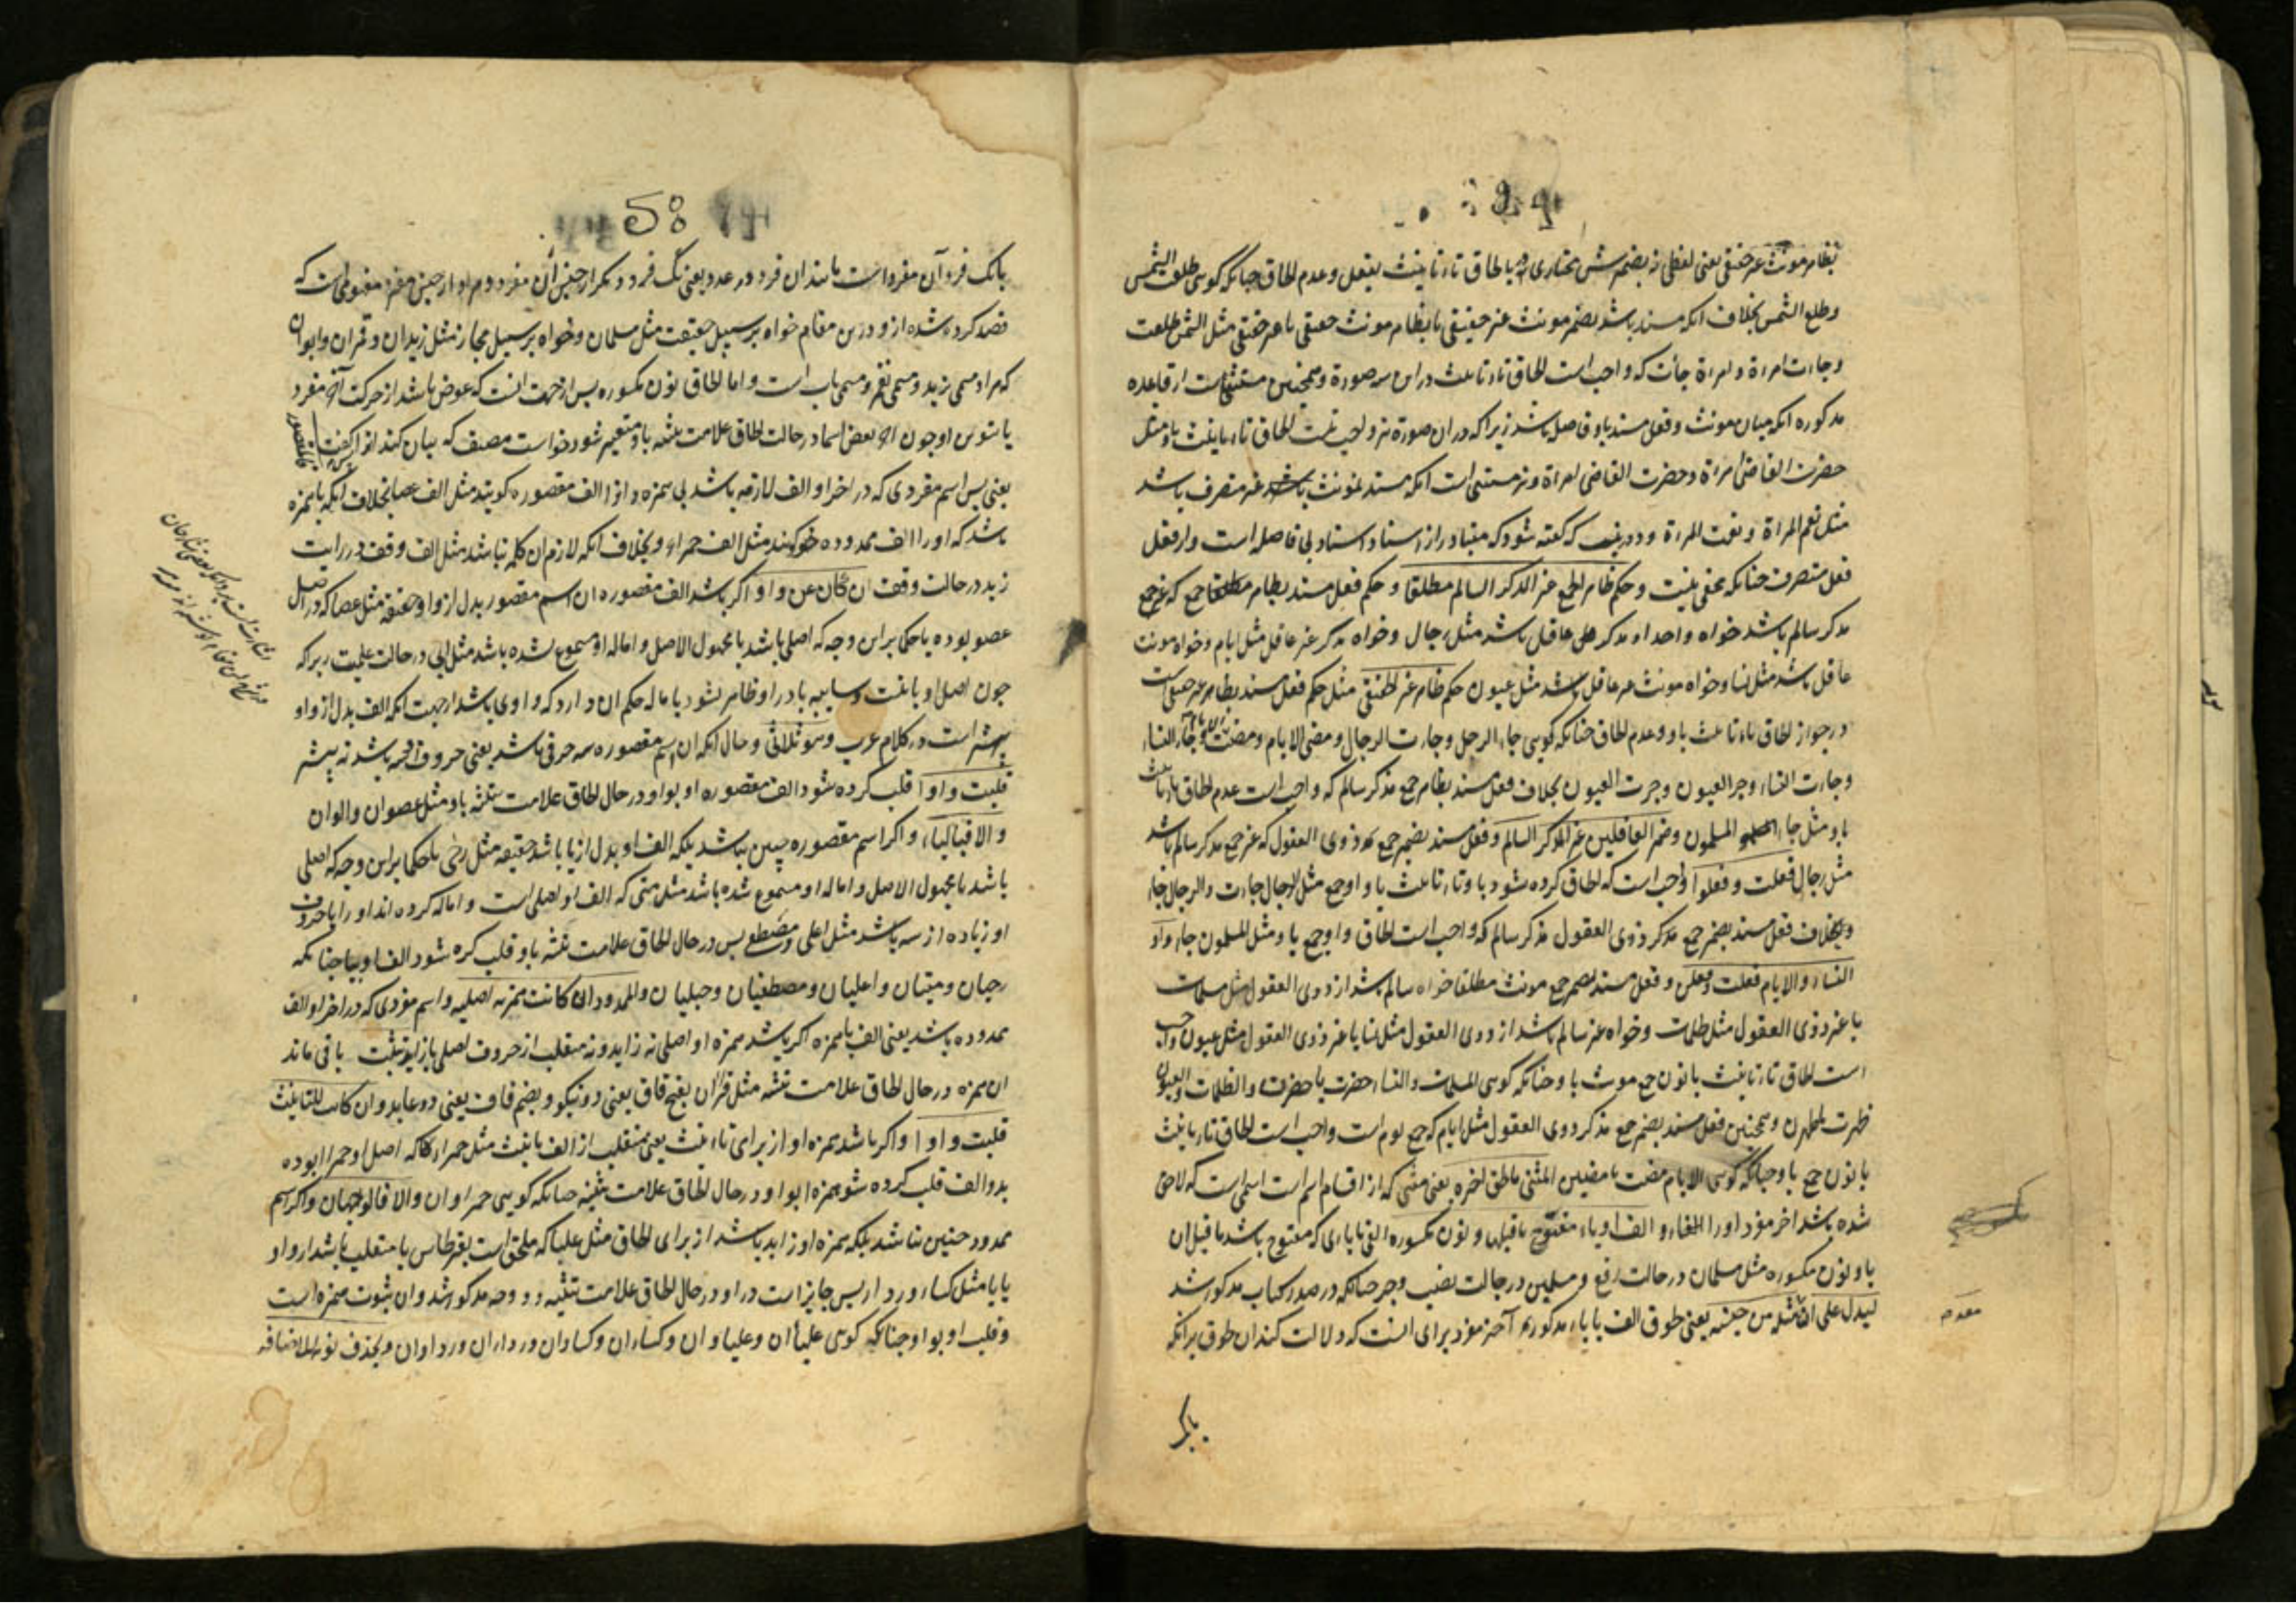 بظاهر مونث غیر حقیقی یعنی لفظی نه بضمیرش مختاری تو بالحاق تاء تانیث بفعل و عدم الحاق چنانکه کویی طلعت الشمس
و طلع الشمس بخلاف انکه مسند باشد بضمیر مونث غیر حقیقی یا بظاهر مونث حقیقی یا غیر حقیقی مثل الشمس طلعت
و جاءت امراة و امراة جاءت که واجب است الحاق تاء تانیث در این سه صورة و همچنین مستثنی است از قاعده
مذکوره انکه میان مونث و فعل مسند باو فاصل باشد زیرا که در ان صورة نیز واجب نیست الحاق تاء تانیث باو مثل
حضرت القاضی امراة و حضر القاضی امراة و نیز مستثنی است انکه مسند بمونث باشد غیر متصرف باشد
مثل نعم المراة و نعمت المراة و دور نیست که کفته شود که متبادر از اسناد اسناد بی فاصله است و از فعل
فعل متصرف چنانکه مخفی نیست و حکم ظاهر الجمع غیر المذکر السالم مطلقا و حکم فعل مسند بظاهر مطلقا جمع که غیر جمع
مذکر سالم باشد خواه واحد او مذکر عاقل باشد مثل رجال و خواه مذکر غیر عاقل مثل ایام و خواه مونث
عاقل باشد مثل نساء و خواه مونث غیر عاقل باشد مثل عیون حکم ظاهر غیر الحقیقی مثل حکم فعل مسند بظاهر غیر حقیقی است
در جواز الحاق تاء تانیث باو و عدم الحاق چنانکه کویی جاء الرجل و جاءت الرجال و مضی الایام و مضت الایام و جاء النساء
و جاءت النساء و جر العیون و جرت العیون بخلاف فعل مسند بظاهر جمع مذکر سالم که واجب است عدم الحاق تاء تانیث
باو مثل جاء المسلمون و ضمیر العاقلین غیر المذکر السالم و فعل مسند بضمیر جمع مذکر ذوی العقول که غیر جمع مذکر سالم باشد
مثل رجال فعلت و فعلوا واجب است که الحاق کرده شود باو تاء تانیث یا واو جمع مثل الرجال جاءت و الرجال جاؤا
و بخلاف فعل مسند بضمیر جمع مذکر ذوی العقول مذکر سالم که واجب است الحاق واو جمع باو مثل المسلمون جاؤا و
النساء و الایام فعلت و فعلن و فعل مسند بضمیر جمع مونث مطلقا خواه سالم باشد از ذوی العقول مثل مسلمات
یا غیر ذوی العقول مثل ظلمات و خواه غیر سالم باشد از ذوی العقول مثل نسا یا غیر ذوی العقول مثل عیون واجب
است الحاق تاء تانیث یا نون جمع مونث باو چنانکه کویی المسلمات و النساء حضرت یا حضرن و الظلمات و العیون
ظهرت یا ظهرن و همچنین فعل مسند بضمیر جمع مذکر ذوی العقول مثل ایام که جمع یوم است واجب است الحاق تاء تانیث
یا نون جمع باو چنانکه کویی الایام مضت یا مضین المثنی ما لحق اخره یعنی مثنی که از اقسام اسم است اسمی است که لاحق
شده باشد اخر مفرد او را الف او یاء مفتوح ما قبلها و نون مکسوره الفی یا یایی که مفتوح باشد ما قبل ان
با و نون مکسوره مثل مسلمان در حالت رفع و مسلمین در حالت نصب و جر چنانکه در صدر کتاب مذکور شد
لیدل علی ان مثله من جنسه یعنی لحوق الف یا یاء مذکور به آخر مفرد برای انست که دلالت کند ان لحوق برانکه
بانک
مقدم
58
بانک فرد آن مفرد است مانند ان فرد در عدد یعنی یک فرد دیکر از جنس ان مفرد و مراد از جنس مفرد مفهومی است که
قصد کرده شده از و در ین مقام خواه بر سبیل حقیقت مثل مسلمان و خواه بر سبیل مجاز مثل زیدان و قمران و ابوان
که مراد مسمی بزید و مسمی بقمر و مسمی باب است و اما الحاق نون مکسوره پس از جهت انست که عوض باشد از حرکت آخر مفرد
یا تنوین او چون اخر بعض اسما در حالت الحاق علامت تثنیه باو متغیر شود خواست مصنف که بیان کند انرا کفت فالمقصور
یعنی پس اسم مفردی که در اخر او الف لازمه باشد بی همزه و انرا الف مقصوره کویند مثل الف عصا بخلاف انکه با همزه
باشد که او را الف ممدوده خوانند مثل الف حمراء و بخلاف انکه لازم ان کلمه نباشد مثل الف وقف در رایت
زید در حالت وقف ان کان عن واو اکر باشد الف مقصوره ان اسم مقصور بدل از واو حقیقة مثل عصا که در اصل
عصو بوده یا حکما براین وجه که اصلی باشد یا مجهول الاصل و اماله او مسموع نشده باشد مثل الی در حالت علمیت زیرا که
چون اصل او یا نیست و سببیه یا در او ظاهر نشود یا ماله حکم ان دارد که واوی باشد از جهت انکه الف بدل از واو
بیشتر است در کلام عرب و هو ثلاثی و حال انکه ان اسم مقصوره سه حرفی باشد یعنی حروف او سه باشد نه بیشتر
قلبت واوا قلب کرده شود الف مقصوره او بواو در حال الحاق علامت تثنیه باو مثل عصوان و الوان
و الا فبالیاء و اکر اسم مقصوره چنین نباشد بلکه الف او بدل از یا باشد حقیقه مثل رحی یا حکما براین وجه که اصلی
باشد یا مجهول الاصل و اماله او مسموع شده باشد مثل متی که الف او اصلی است و اماله کرده اند او را یا حروف
او زیاده از سه باشد مثل اعلی و مصطفی پس در حال الحاق علامت تثنیه باو قلب کرده شود الف او بیا چنانکه
رحیان و متیان و اعلیان و مصطفیان و حبلیان و الممدود ان کانت همزته اصلیه و اسم مفردی که در اخر او الف
ممدوده باشد یعنی الف با همزه اکر باشد همزه او اصلی نه زاید و نه منقلب از حروف اصلی یا زاید تثبت باقی ماند
ان همزه در حال الحاق علامت تثنیه مثل قراان بفتح قاف یعنی دو نیکو و بضم قاف یعنی دو عابد و ان کانت للتانیث
قلبت واوا و اکر باشد همزه او از برای تانیث یعنی منقلب از الف تانیث مثل حمراء که اصل او حمراا بوده
بدو الف قلب کرده شود همزه او بواو در حال الحاق علامت تثنیه چنانکه کویی حمراوان و الا فالوجهان و اکر اسم
ممدود چنین نباشد بلکه همزه او زاید باشد از برای الحاق مثل علباء که ملحق است بقرطاس یا منقلب باشد از واو
یا یا مثل کساء و رداء پس جایز است در او در حال الحاق علامت تثنیه دو وجه مذکور شد و ان ثبوت همزه است
و قلب او بواو چنانکه کویی علباان و علباوان و کساان و کساوان و رداان و رداوان و یحذف نونه للاضافة